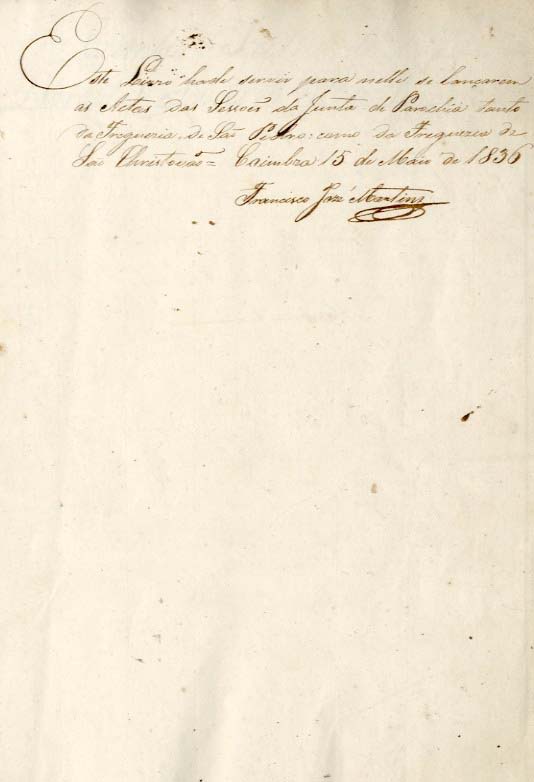 Este Livro hade servir para nelle se lançarem
as Actas das Sessoẽs da Junta de Parochia tanto
da Freguezia de São Pedro: como da Freguezia de
São Christovão = Coimbra 15 de Maio de 1836
Francisco José Martins